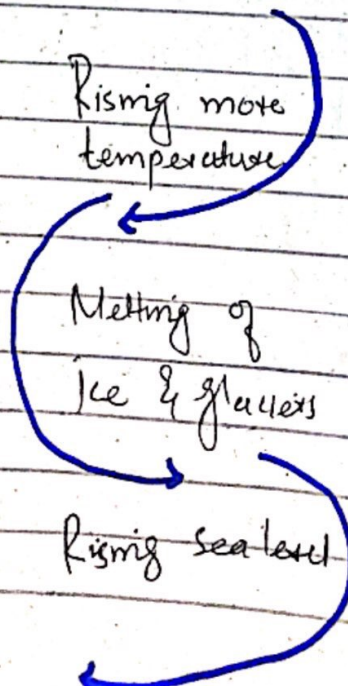 Rising more
temperature
Melting of
Ice & glaciers
Rising sea level